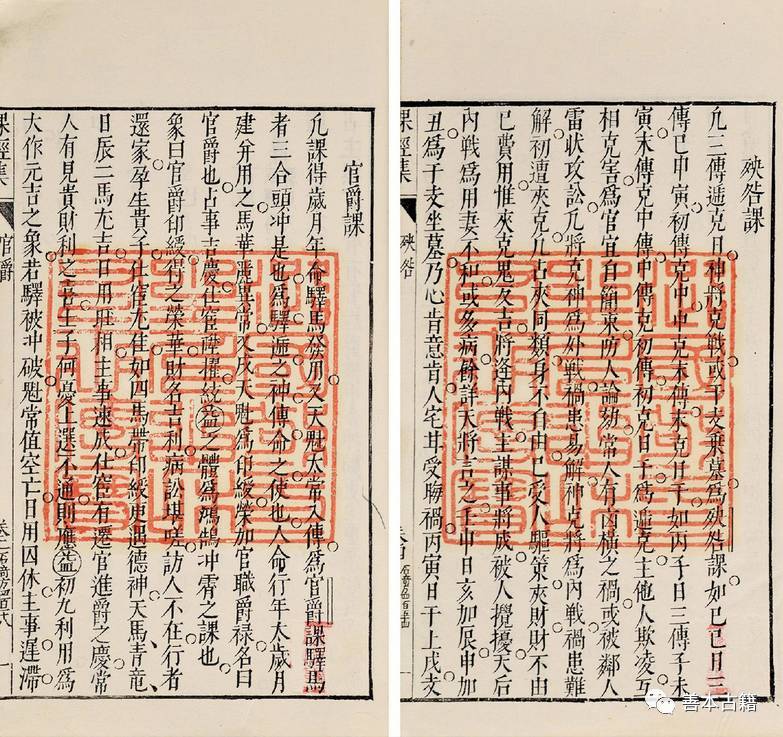 殃咎課
凡三傳遞克日神將克戰或干支乘墓為殃咎課如己巳日三
傳巳申寅初傳克中中克末傳末克日干如丙子日三傳子未
寅末傳克中傳中傳克初傳初克日干為遞克主他人欺凌互
相克害為官宜自簡束防人論劾常人有凶橫之禍或被鄰人
雷狀攻訟凡將克神為外戰禍患易解神克將為內戰禍患難
解初遭夾克凡占夾同類身不自由己受人驅策夾財財不由
己費用惟夾克鬼反吉將逢內戰主謀事將成被人攪擾天后
內戰為用妻不和或多病餘詳天將言之壬申日亥加辰申加
丑為干支坐墓乃心肯意肯人宅甘受晦禍丙寅日干上戌支
課經集 殃咎
官爵課
凡課得歲月年命驛馬發用又天魁太常入傳為官爵課驛馬
者三合頭冲是也為驛遞之神傳命之使也人命行年太歲月
建并用之馬華麗異常又戌天魁為印綬榮加官職爵祿名曰
官爵也占事吉慶仕宦統益之體為鴻鵠冲霄之課也
象曰官爵印綬得之榮華財名吉利病訟堪嗟訪人不在行者
還家孕生貴子仕宦尤佳如四馬帶印綬更遇德神天馬青龍
日辰二馬尤吉日用旺相主事速成仕宦有遷官進爵之慶常
人有見貴財利之喜生子何憂上選不通則應益初九利用為
大作元吉之象若驛被冲破魁常值空亡日用囚休主事遲滯
課經集 官爵
善本古籍